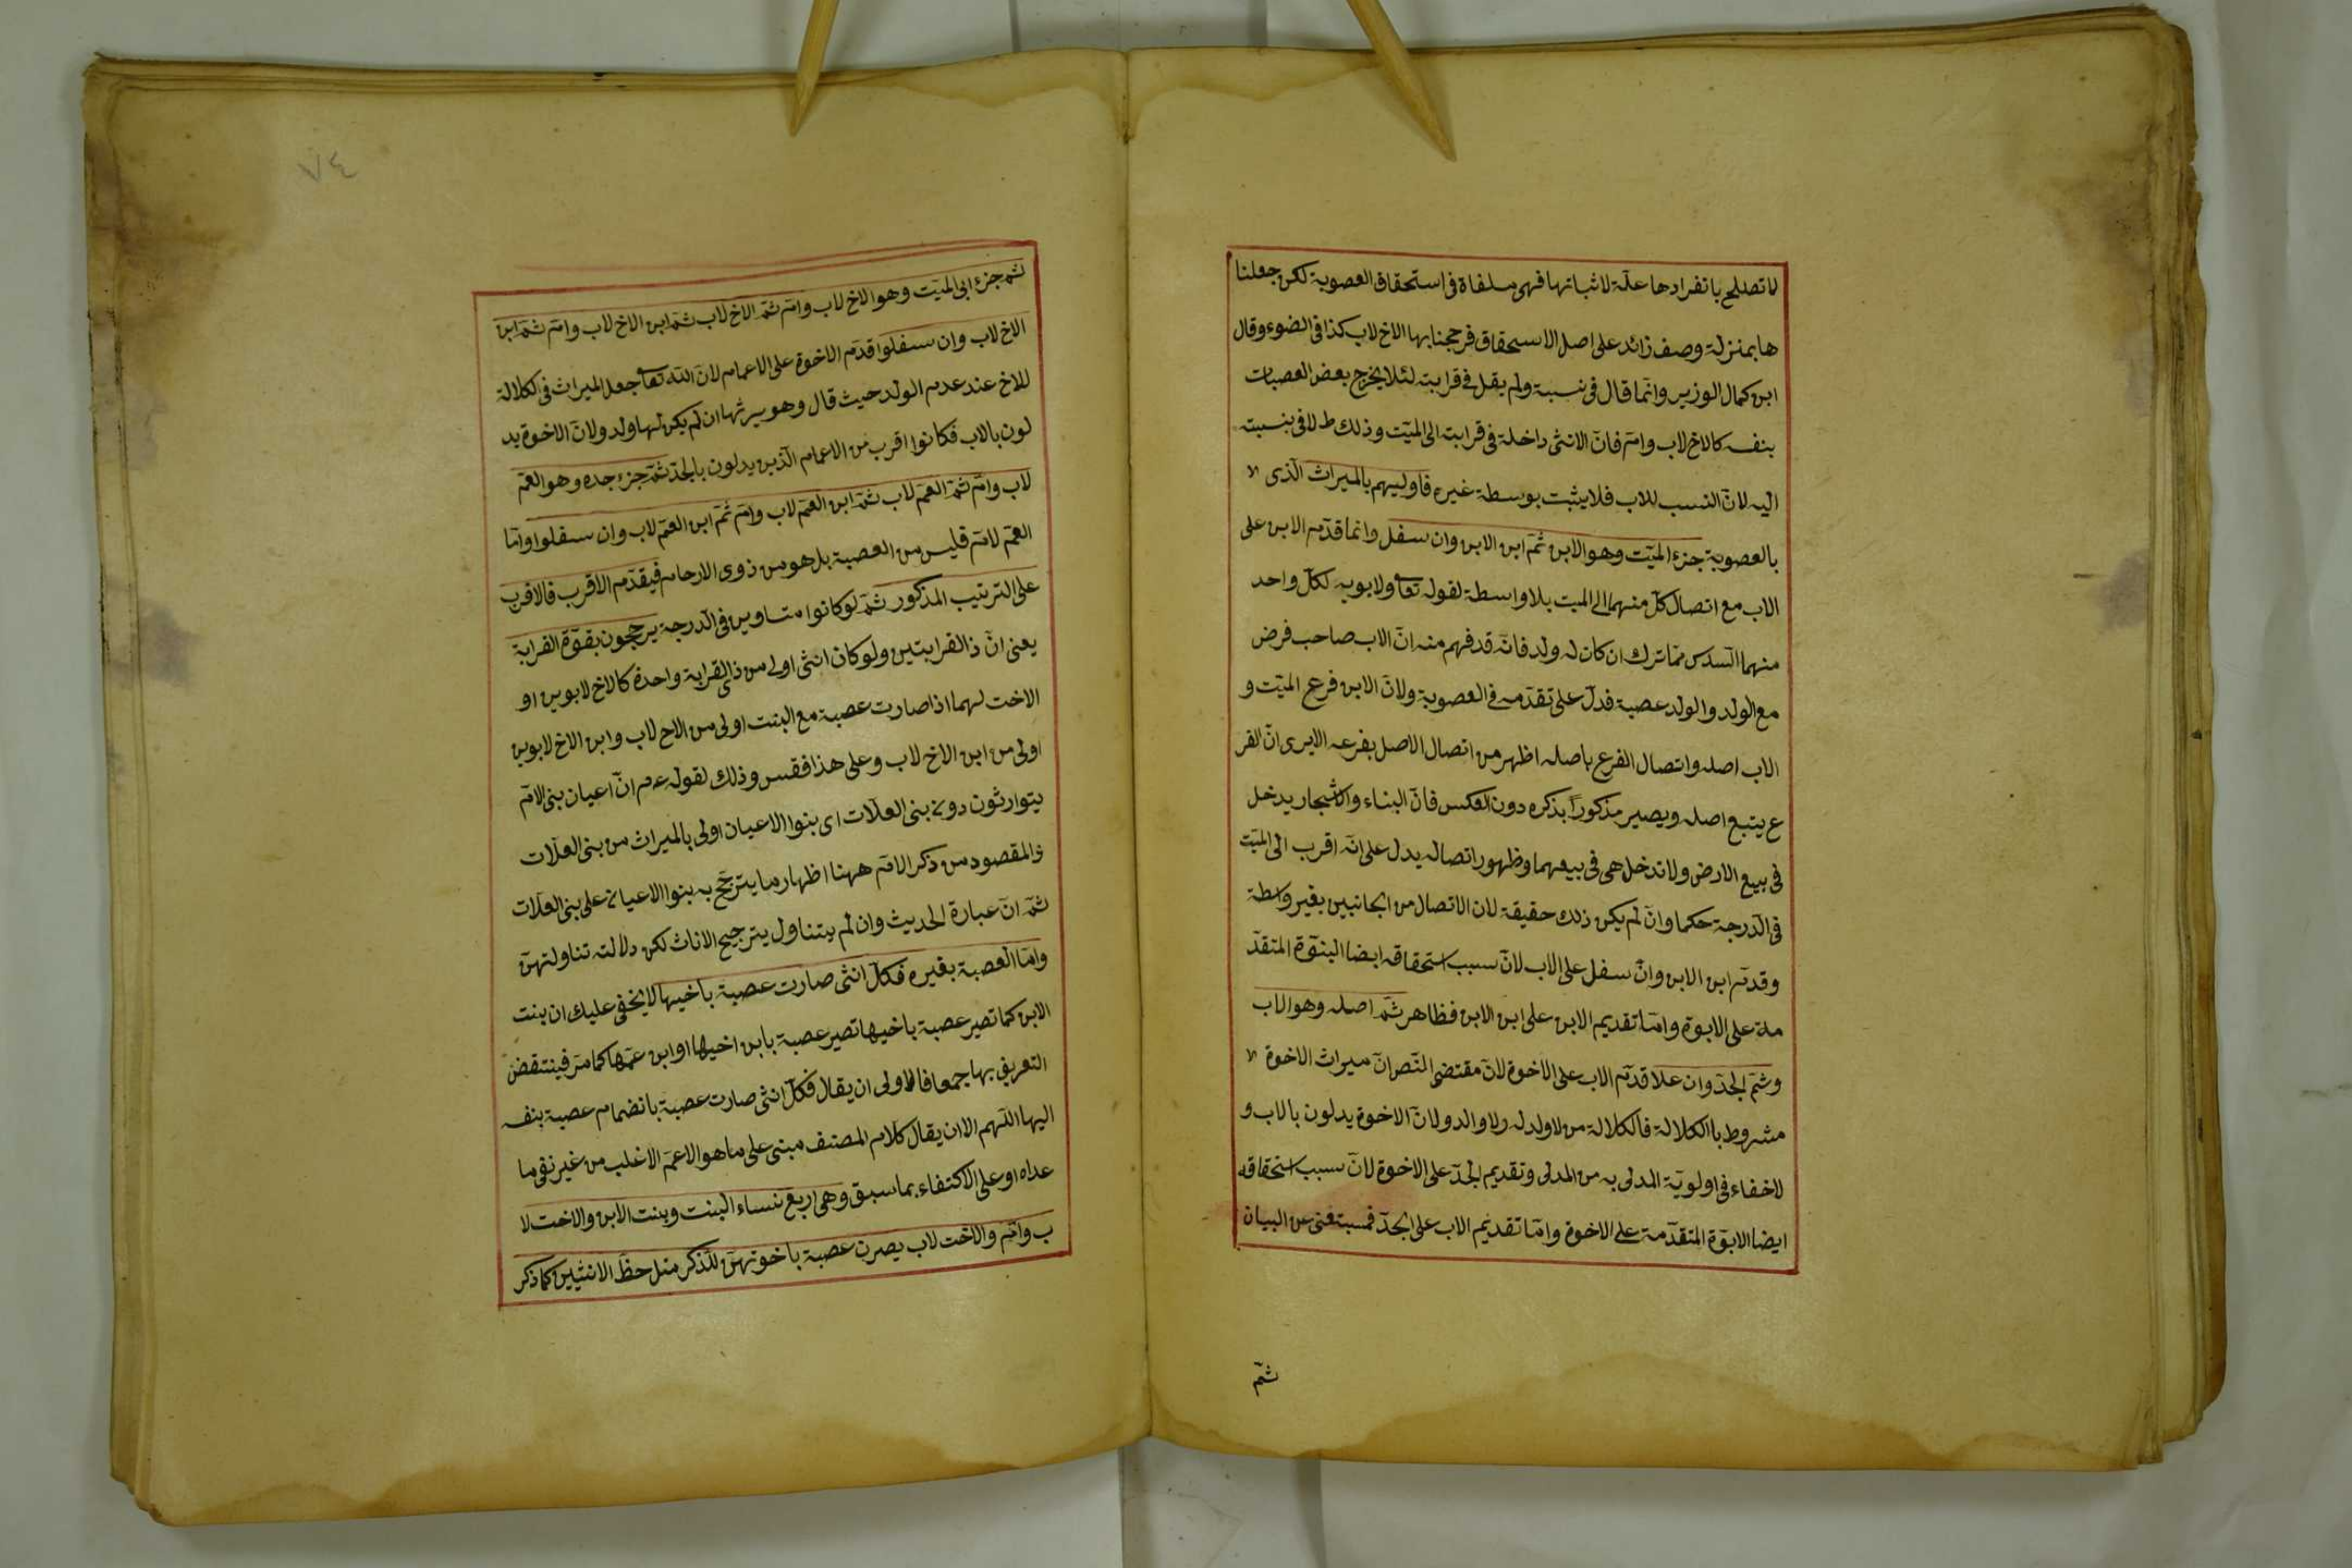 لا تصلح بانفرادها علة لاثباتها فهى ملغاة فى استحقاق العصوبة لكن جعلنا
ها بمنزلة وصف زائد على اصل الاستحقاق فرجحنا بها الاخ لاب كذا فى الضوء وقال
ابن كمال الوزير وانما قال فى نسبة ولم يقل فى قرابته لئلا يخرج بعض العصبات
بنفسه كالاخ لاب وام فان الانثى داخلة فى قرابته الى الميت وذلك ط لا فى نسبته
اليه لان النسب للاب فلا يثبت بوسطة غيره فاوليهم بالميراث الذى
بالعصوبة جزء الميت وهو الابن ثم ابن الابن وان سفل وانما قدم الابن على
الاب مع اتصال كل منهما الى الميت بلا واسطة لقوله تعا ولابويه لكل واحد
منهما السدس مما ترك ان كان له ولد فانه قد فهم منه ان الاب صاحب فرض
مع الولد والولد عصبة فدل على تقدمه فى العصوبة ولان الابن فرع الميت و
الاب اصله واتصال الفرع باصله اظهر من اتصال الاصل بفرعه الا يرى ان الفر
ع يتبع اصله ويصير مذكورا بذكره دون العكس فان البناء والاشجار يدخل
فى بيع الارض ولا تدخل هى فى بيعهما وظهور اتصاله يدل على انه اقرب الى الميت
فى الدرجة حكما وان لم يكن ذلك حقيقة لان الاتصال من الجانبين بغير واسطة
وقدم ابن الابن وان سفل على الاب لان سبب استحقاقه ايضا البنوة المتقد
مة على الابوة واما تقديم الابن على ابن الابن فظاهر ثم اصله وهو الاب
وثم الجد وان علا قدم الاب على الاخوة لان مقتضى النص ان ميراث الاخوة
مشروط بالكلالة فالكلالة من لا ولد له ولا والد ولان الاخوة يدلون بالاب و
لا خفاء فى اولوية المدلى به من المدلى وتقديم الجد على الاخوة لان سبب استحقاقه
ايضا الابوة المتقدمة على الاخوة واما تقديم الاب على الجد عن البيان
ثم
٧٤
ثم جزء ابى الميت وهو الاخ لاب وام ثم الاخ لاب ثم ابن الاخ لاب وام ثم ابن
الاخ لاب وان سفلوا قدم الاخوة على الاعمام لان الله تعا جعل الميراث فى لكلالة
للاخ عند عدم الولد حيث قال وهو يرثها ان لم يكن لها ولد ولان الاخوة يد
لون بالاب فكانوا اقرب من الاعمام الذين يدلون بالجد ثم جزء جده وهو العم
لاب وام ثم العم لاب ثم ابن العم لاب وام ثم ابن العم لاب وان سفلوا واما
العم لام فليس من العصبة بل هو من ذوى الارحام فيقدم الاقرب فالاقرب
على الترتيب المذكور ثم لو كانوا متساوين فى الدرجة يرجحون بقوة القرابة
يعنى ان ذا القرابتين ولو كان انثى اولى من ذى القرابة واحدة كالاخ لابوين او
الاخت لهما اذا صارت عصبة مع البنت اولى من الاخ لاب وابن الاخ لابوين
اولى من ابن الاخ لاب وعلى هذا فقس وذلك لقوله عم ان اعيان بنى الام
يتوارثون دون بنى العلات اى بنوا الاعيان اولى بالميراث من بنى العلات
والمقصود من ذكر الام ههنا اظهار ما يترجح به بنوا الاعيان على بنى العلات
ثم ان عبارة الحديث وان لم يتناول يترجيح الاناث لكن دلالته تناولتهن
واما العصبة بغيره فكل انثى صارت عصبة باخيها لا يخفى عليك ان بنت
الابن كما تصير عصبة باخيها تصير عصبة بابن اخيها او ابن عمها كما مر فينتقض
التعريف بها جمعا فالاولى ان يقال فكل انثى صارت عصبة بانضمام عصبة بنفسه
اليها اللهم الا ان يقال كلام المصنف مبنى على ما هو الاعم الاغلب من غير نفى ما
عداه او على الاكتفاء بما سبق وهى اربع نساء البنت وبنت الابن والاخت لا
ب وام والاخت لاب يصرن عصبة باخوتهن للذكر مثل حظ الانثيين كما ذكر